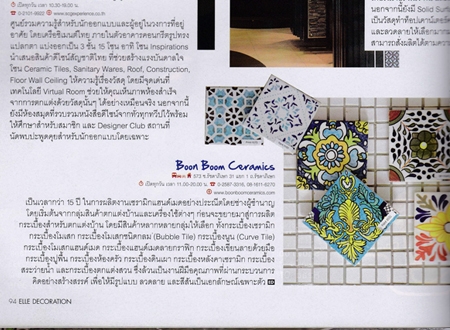 เปิดทุกวัน เวลา 10.30-19.00 น.
0-2101-9922 www.scgexperience.co.th
ศูนย์รวมความรู้สำหรับนักออกแบบและผู้อยู่ในวงการที่อยู่
อาศัย โดยเครือซิเมนต์ไทย ภายในตัวอาคารคอนกรีตรูปทรง
แปลกตา แบ่งออกเป็น 3 ชั้น 15 โซน อาทิ โซน Inspirations
นำเสนอสินค้าดีไซน์สัญชาติไทย ที่ช่วยสร้างแรงบันดาลใจ
โซน Ceramic Tiles, Sanitary Wares, Roof, Construction,
Floor Wall Ceiling ให้ความรู้เรื่องวัสดุ โดยมีจุดเด่นที่
เทคโนโลยี Virtual Room ช่วยให้คุณเห็นภาพห้องสำเร็จ
จากการตกแต่งด้วยวัสดุนั้นๆ ได้อย่างเหมือนจริง นอกจากนี้
ยังมีห้องสมุดที่รวบรวมหนังสือดีไซน์จากทั่วทุกทวีปไว้พร้อม
ให้ศึกษาสำหรับสมาชิก และ Designer Club สถานที่
นัดพบปะพูดคุยสำหรับนักออกแบบโดยเฉพาะ
นอกจากนี้ยังมี Solid Surf
เป็นวัสดุทำท็อปเคาน์เตอร์
และลวดลายให้เลือกมาก
สามารถสั่งผลิตได้ตามควา
Boon Boom Ceramics
573 ซ.รัชดาภิเษก
เปิดทุกวัน เวลา 11.00-20.00 น.
www.boonboomceramics.com
เป็นเวลากว่า 15 ปี ในการผลิตงานเซรามิกแฮนด์เมดอย่างประณีตโดยช่างผู้ชำนาญ
โดยเริ่มต้นจากกลุ่มสินค้าตกแต่งบ้านและเครื่องใช้ต่างๆ ก่อนจะขยายมาสู่การผลิต
กระเบื้องสำหรับตกแต่งบ้าน โดยมีสินค้าหลากหลายกลุ่มให้เลือก ทั้งกระเบื้องเซรามิก
กระเบื้องโมเสก กระเบื้องโมเสกชนิดกลม (Bubble Tile) กระเบื้องนูน (Curve Tile)
กระเบื้องโมเสกแฮนด์เมด กระเบื้องแฮนด์เมดลายกราฟิก กระเบื้องเขียนลายด้วยมือ
กระเบื้องปูพื้น กระเบื้องห้องครัว กระเบื้องดินเผา กระเบื้องหลังคาเซรามิก กระเบื้อง
สระว่ายน้ำ และกระเบื้องตกแต่งสวน ซึ่งล้วนเป็นงานฝีมือคุณภาพที่ผ่านกระบวนการ
คิดอย่างสร้างสรรค์ เพื่อให้มีรูปแบบ ลวดลาย และสีสันเป็นเอกลักษณ์เฉพาะตัว
94 ELLE DECORATION